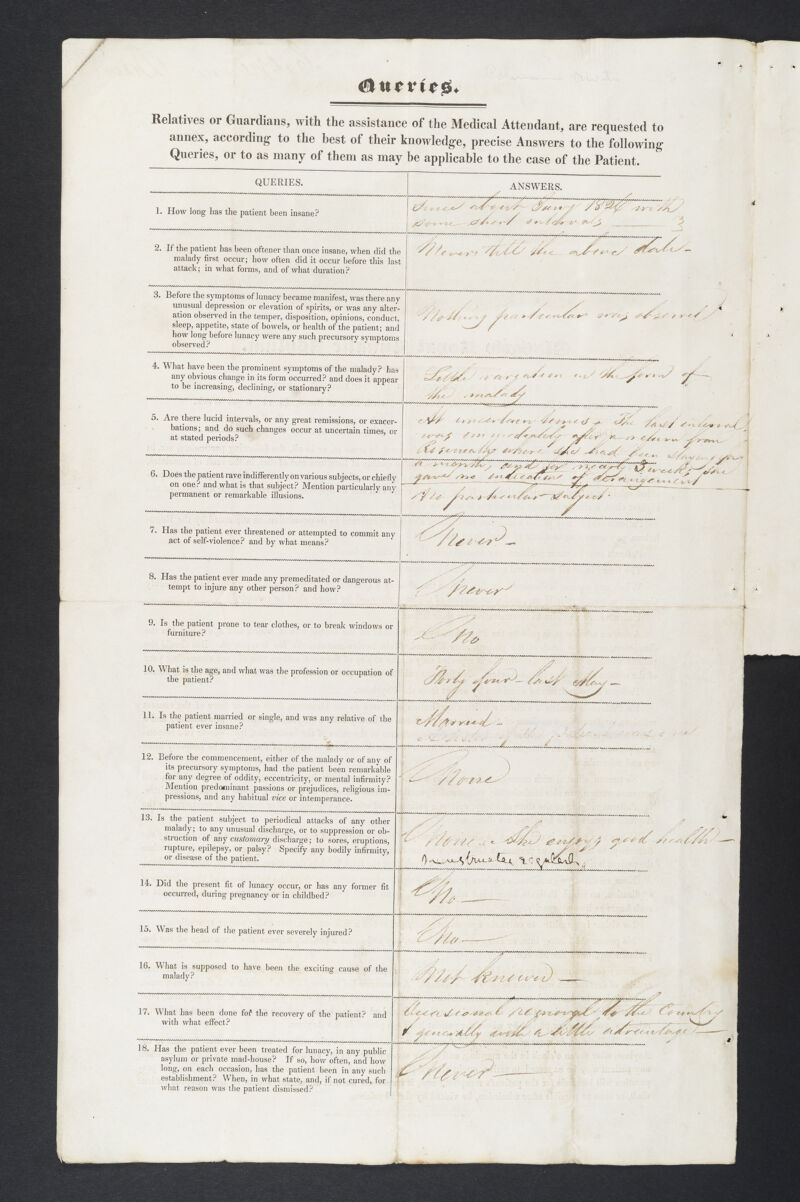 Queries.
Relatives or Guardians, with the assistance of the Medical Attendant, are requested to
annex, according to the best of their knowledge, precise Answers to the following
Queries, or to as many of them as may be applicable to the case of the Patient.
QUERIES.
ANSWERS.
1. How long has the patient been insane?
Since about Jany 1826 with
some short intervals
2. If the patient has been oftener than once insane, when did the
malady first occur; how often did it occur before this last
attack; in what forms, and of what duration?
Never till the above date-
3. Before the symptoms of lunacy became manifest, was there any
unusual depression or elevation of spirits, or was any alter-
ation observed in the temper, disposition, opinions, conduct,
sleep, appetite, state of bowels, or health of the patient; and
how long before lunacy were any such precursory symptoms
observed?
Nothing particular was observed
4. What have been the prominent symptoms of the malady? has
any obvious change in its form occurred? and does it appear
to be increasing, declining, or stationary?
Little variation in the form of
the malady
5. Are there lucid intervals, or any great remissions, or exacer-
bations; and do such changes occur at uncertain times, or
at stated periods?
At uncertain times. The last interval
was immediately after a return from
Roseneath where she had been staying for
a month, and for nearly 3 weeks she
gave no indication of derangement
6. Does the patient rave indifferently on various subjects, or chiefly
on one? and what is that subject? Mention particularly any
permanent or remarkable illusions.
No particular subject.
7. Has the patient ever threatened or attempted to commit any
act of self-violence? and by what means?
Never-
8. Has the patient ever made any premeditated or dangerous at-
tempt to injure any other person? and how?
Never
9. Is the patient prone to tear clothes, or to break windows or
furniture?
No
10. What is the age, and what was the profession or occupation of
the patient?
Forty four - last May-
11. Is the patient married or single, and was any relative of the
patient ever insane?
Married-
12. Before the commencement, either of the malady or of any of
its precursory symptoms, had the patient been remarkable
for any degree of oddity, eccentricity, or mental infirmity?
Mention predominant passions or prejudices, religious im-
pressions, and any habitual vice or intemperance.
None
13. Is the patient subject to periodical attacks of any other
malady; to any unusual discharge, or to suppression or ob-
struction of any customary discharge; to sores, eruptions,
rupture, epilepsy, or palsy? Specify any bodily infirmity,
or disease of the patient.
None. She enjoys good health-
menstruates regularly.
14. Did the present fit of lunacy occur, or has any former fit
occurred, during pregnancy or in childbed?
No-
15. Was the head of the patient ever severely injured?
No-
16. What is supposed to have been the exciting cause of the
malady?
Not known-
17. What has been done for the recovery of the patient? and
with what effect?
Occasional removal to the Country
& generally with a little advantage-
18. Has the patient ever been treated for lunacy, in any public
asylum or private mad-house? If so, how often, and how
long, on each occasion, has the patient been in any such
establishment? When, in what state, and, if not cured, for
what reason was the patient dismissed?
Never-